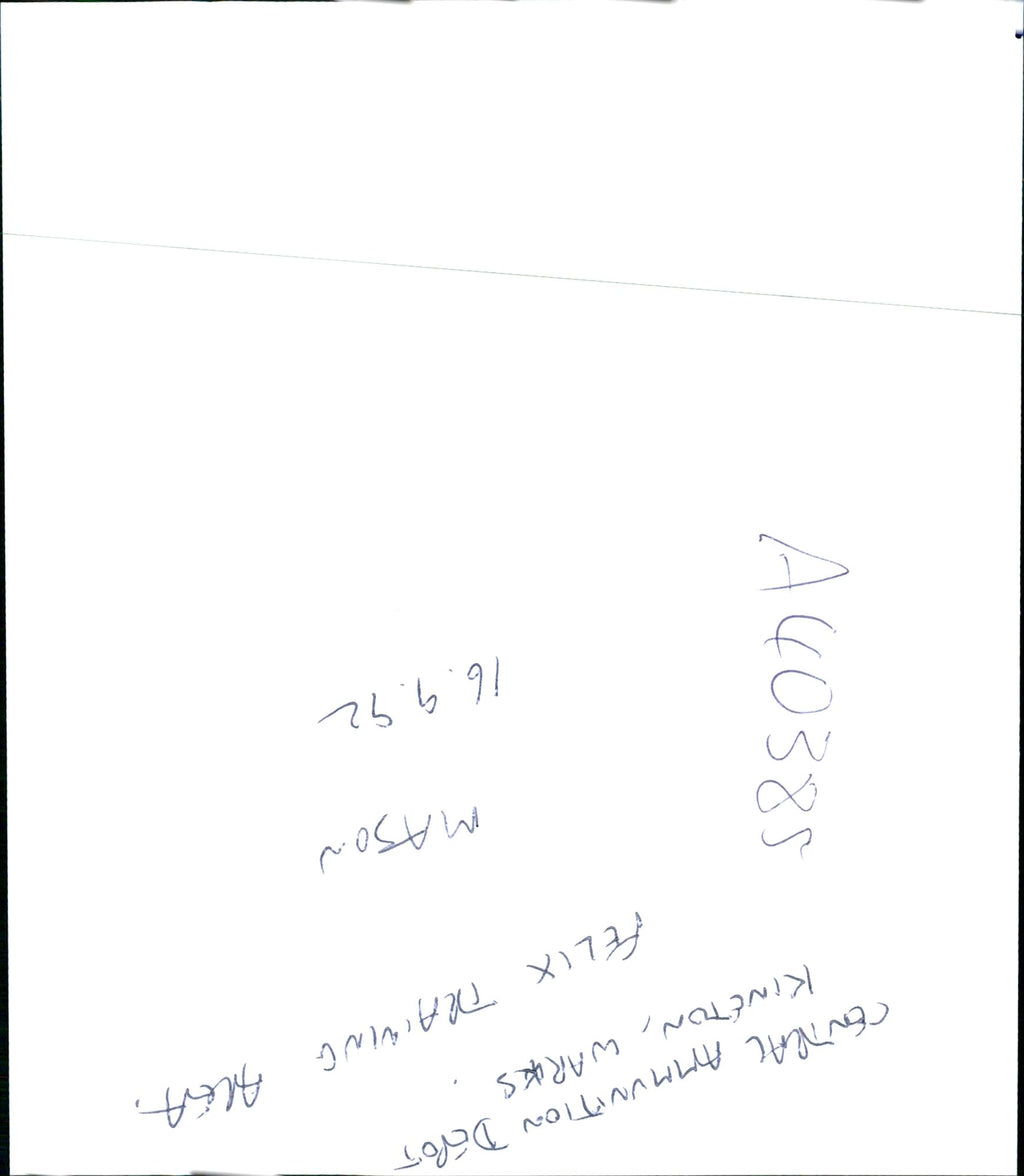 CENTRAL AMMUNITION DEPOT
KINETON, WARKS.
FELIX TRAINING AREA.
MASON
16.9.92
A40385